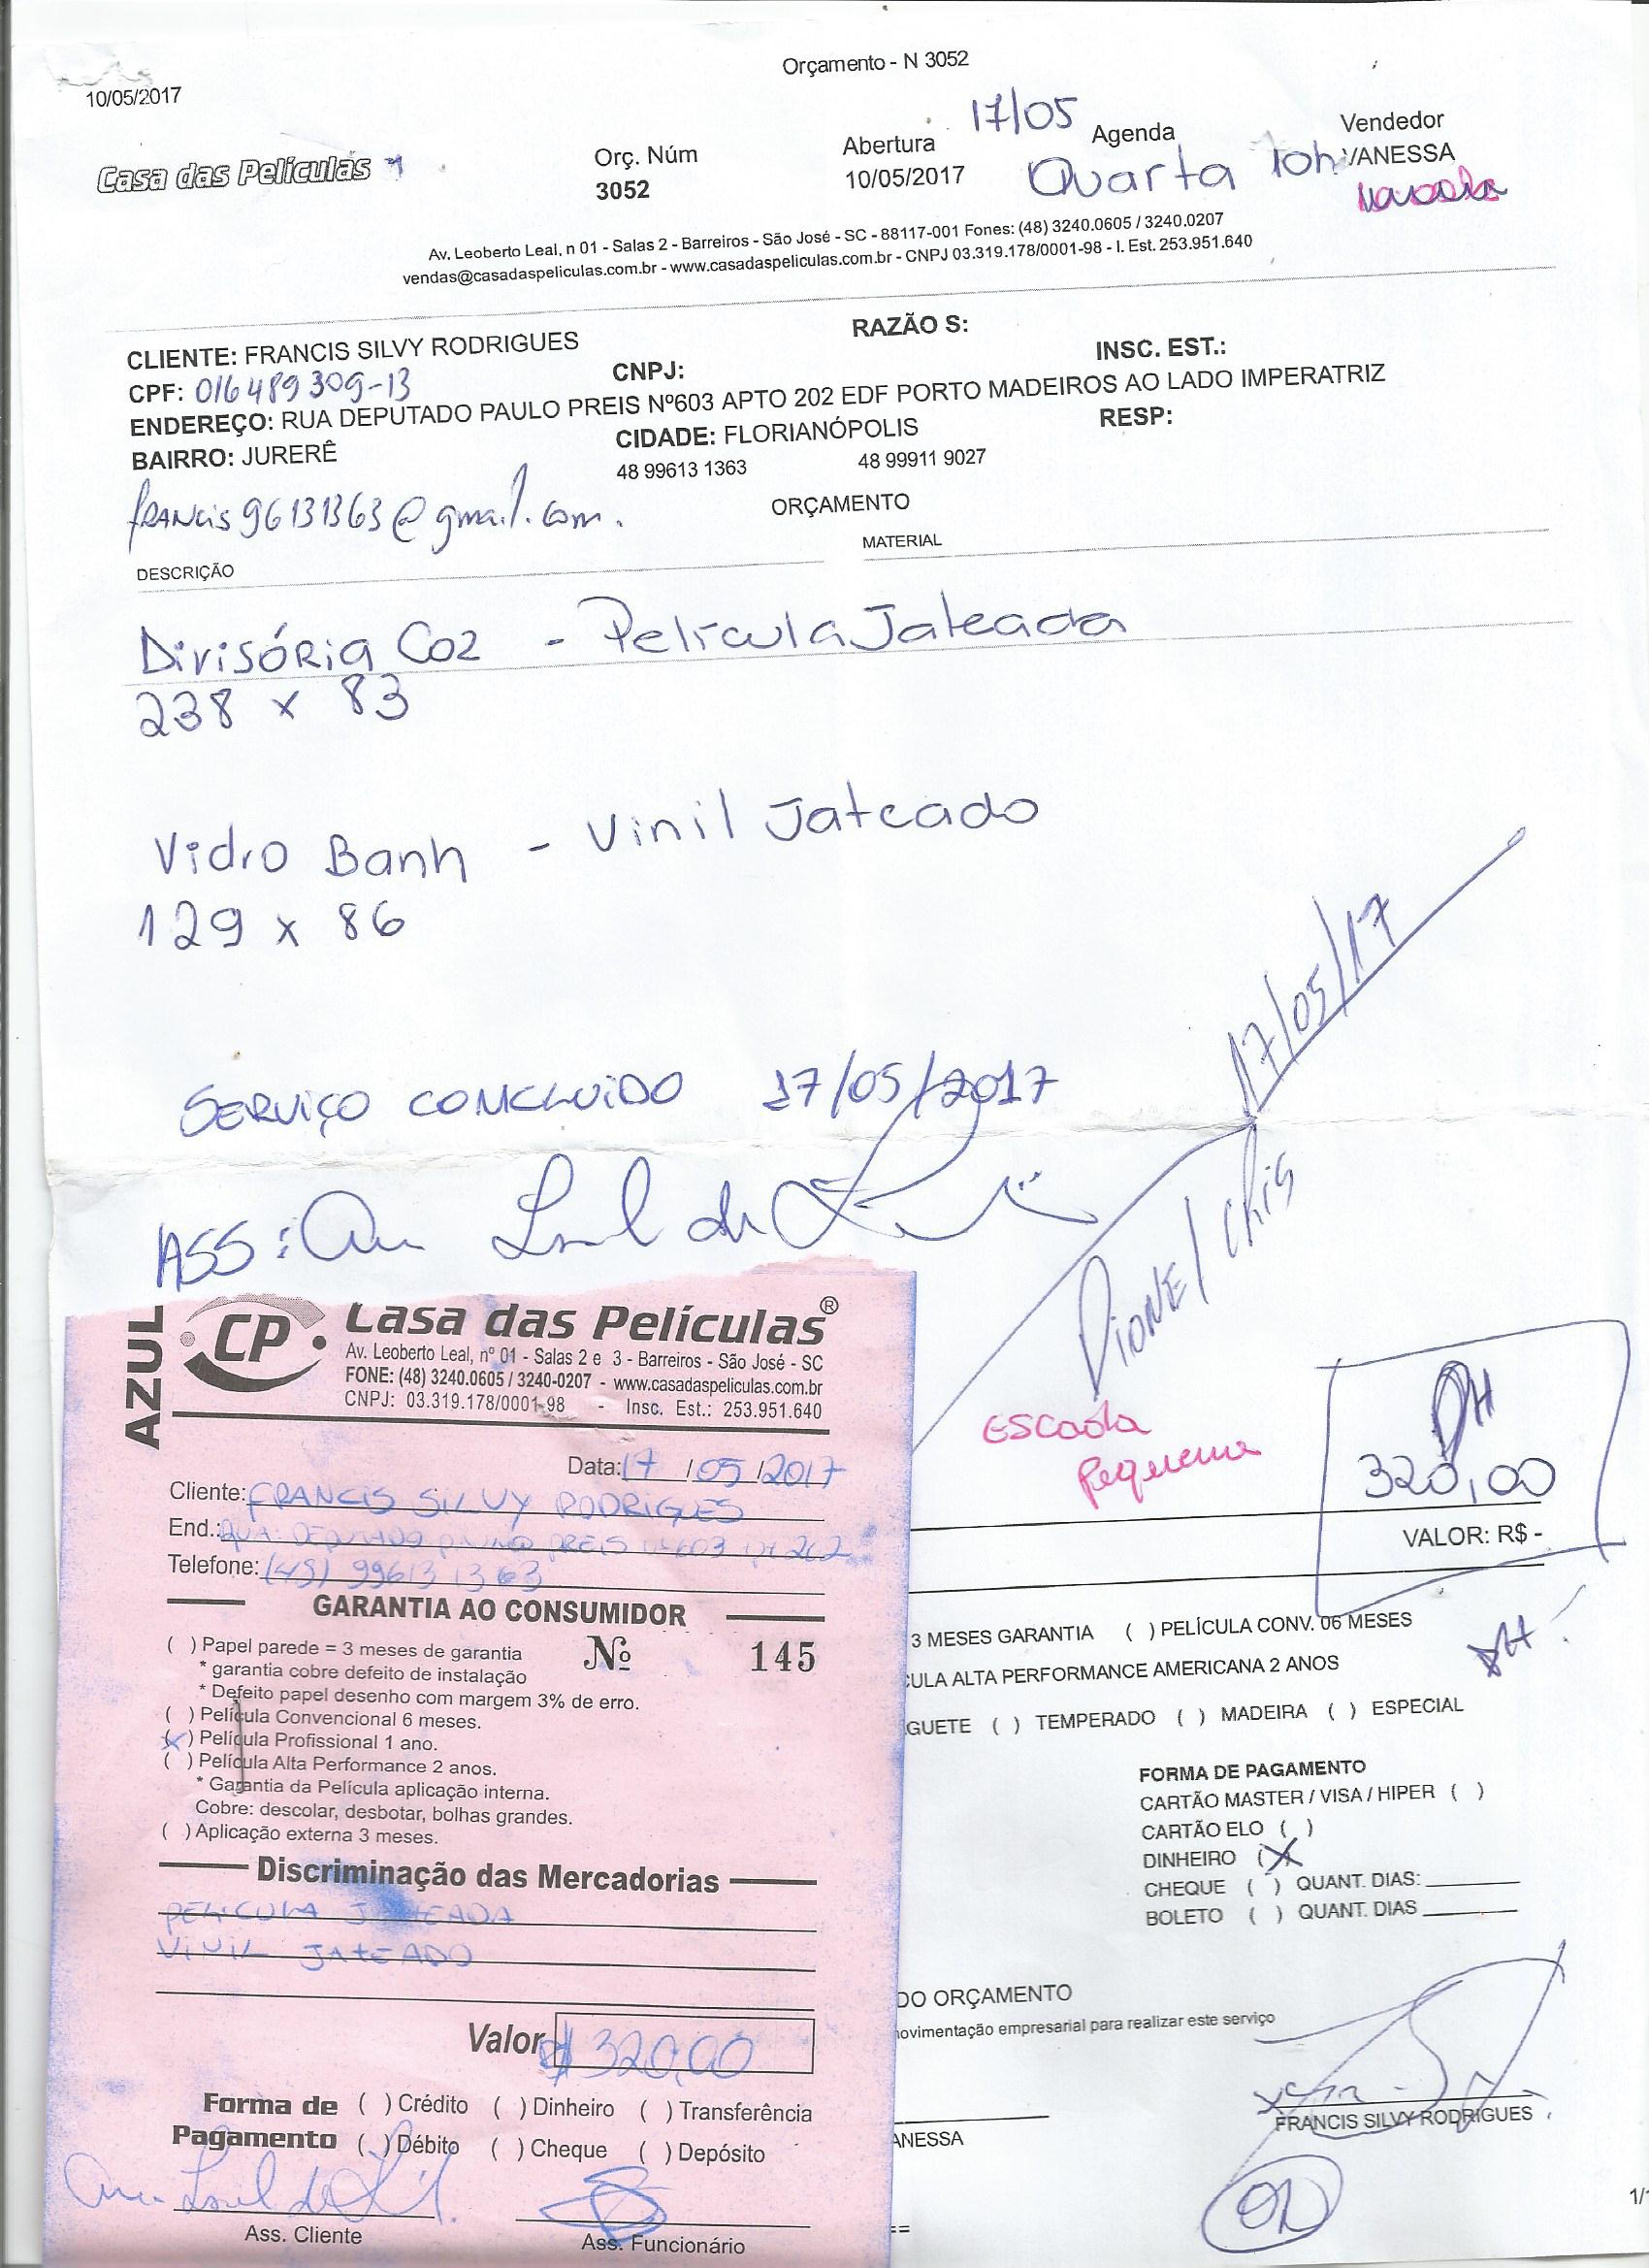 Orçamento - N 3052
10/05/2017
Casa das Películas
Orç. Núm
3052
Abertura
10/05/2017
17/05
Agenda
Quarta 10h
Vendedor
VANESSA
Av. Leoberto Leal, n 01 - Salas 2 - Barreiros - São José - SC - 88117-001 Fones: (48) 3240.0605 / 3240.0207
vendas@casadaspeliculas.com.br - www.casadaspeliculas.com.br - CNPJ 03.319.178/0001-98 - I. Est. 253.951.640
CLIENTE: FRANCIS SILVY RODRIGUES
RAZÃO S:
CPF: 016489309-13
CNPJ:
INSC. EST.:
ENDEREÇO: RUA DEPUTADO PAULO PREIS Nº603 APTO 202 EDF PORTO MADEIROS AO LADO IMPERATRIZ
BAIRRO: JURERÊ
CIDADE: FLORIANÓPOLIS
RESP:
48 99613 1363
48 99911 9027
francis96131363@gmail.com.
ORÇAMENTO
DESCRIÇÃO
MATERIAL
Divisória Coz - Película Jateada
238 x 83
Vidro Banh - Vinil Jateado
129 x 86
17/05/17
SERVIÇO CONCLUIDO 17/05/2017
ASS:
DIONE/Chis
Escada
Pequena
DH
320,00
VALOR: R$ -
3 MESES GARANTIA ( ) PELÍCULA CONV. 06 MESES
CULA ALTA PERFORMANCE AMERICANA 2 ANOS
GUETE ( ) TEMPERADO ( ) MADEIRA ( ) ESPECIAL
DH
FORMA DE PAGAMENTO
CARTÃO MASTER / VISA / HIPER ( )
CARTÃO ELO ( )
DINHEIRO (X)
CHEQUE ( ) QUANT. DIAS:
BOLETO ( ) QUANT. DIAS
DO ORÇAMENTO
movimentação empresarial para realizar este serviço
FRANCIS SILVY RODRIGUES
ANESSA
==
1/1
AZUL
CP
Casa das Películas®
Av. Leoberto Leal, nº 01 - Salas 2 e 3 - Barreiros - São José - SC
FONE: (48) 3240.0605 / 3240-0207 - www.casadaspeliculas.com.br
CNPJ: 03.319.178/0001-98 - Insc. Est.: 253.951.640
Data: 17/05/2017
Cliente: FRANCIS SILVY RODRIGUES
End.: RUA: DEPUTADO PAULO PREIS Nº603 AP 202
Telefone: (48) 99613 1363
GARANTIA AO CONSUMIDOR
( ) Papel parede = 3 meses de garantia
Nº 145
* garantia cobre defeito de instalação
* Defeito papel desenho com margem 3% de erro.
( ) Película Convencional 6 meses.
(X) Película Profissional 1 ano.
( ) Película Alta Performance 2 anos.
* Garantia da Película aplicação interna.
Cobre: descolar, desbotar, bolhas grandes.
( ) Aplicação externa 3 meses.
Discriminação das Mercadorias
PELICULA JATEADA
VINIL JATEADO
Valor R$ 320,00
Forma de Pagamento
( ) Crédito ( ) Dinheiro ( ) Transferência
( ) Débito ( ) Cheque ( ) Depósito
Ass. Cliente
Ass. Funcionário